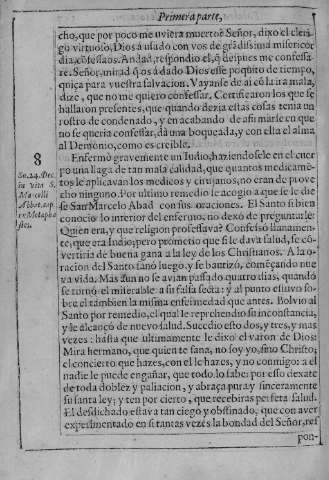 Primera parte,
cho, que por poco me uviera muerto? Señor, dixo el cleri-
go virtuoso, Dios à usado con vos de grādissima misericor
dia, cōfessaos. Andad, respondio el, q̄ despues me confessa-
re. Señor, mirad q̄ os à dado Dios esse poquito de tiempo,
quiça para vuestra salvacion. Vayanse de aì cō la ira mala,
dize, que no me quiero confessar. Certificaron los que se
hallaron presentes, que quando dezia estas cosas tenia un
rostro de condenado, y en acabando de afirmarse en que
no se queria confessar, dà una boqueada, y con ella el alma
al Demonio, como es creible.
8
Enfermò gravemente un Iudio, haziendosele en el cuer
po una llaga de tan mala calidad, que quantos medicamē-
tos le aplicavan los medicos y cirujanos, no eran de prove
cho ninguno. Por ultimo remedio le acogio a que se le die
sse San Marcelo Abad con sus oraciones. El Santo si bien
conocio lo interior del enfermo, no dexò de preguntarle:
Quien era, y que religion professava? Confessò llanamen-
te, que era Iudio; pero prometio que si le dava salud, se cō-
vertiria de buena gana a la ley de los Christianos. A la o-
racion del Santo sanò luego, y se bautizò, començando nue
va vida. Mas aun no se avian passado quatro dias, quando
se tornò el miserable a su falsa secta: y al punto estuvo so-
bre el tambien la misma enfermedad que antes. Bolvio al
Santo por remedio, el qual le reprehendio su inconstancia,
y le alcançò de nuevo salud. Succedio esto dos, y tres, y mas
vezes: hasta que ultimamente le dixo el varon de Dios:
Mira hermano, que quien te sana, no soy yo, sino Christo;
el concierto que hazes, con el le hazes, y no conmigo: a el
nadie le puede engañar, que todo lo sabe: por esso dexate
de toda doblez y paliacion, y abraça pura y sinceramente
su santa ley; y ten por cierto, que recebiras perfeta salud.
El desdichado estava tan ciego y obstinado, que con aver
experimentado en si tantas vezes la bondad del Señor, res
pon-